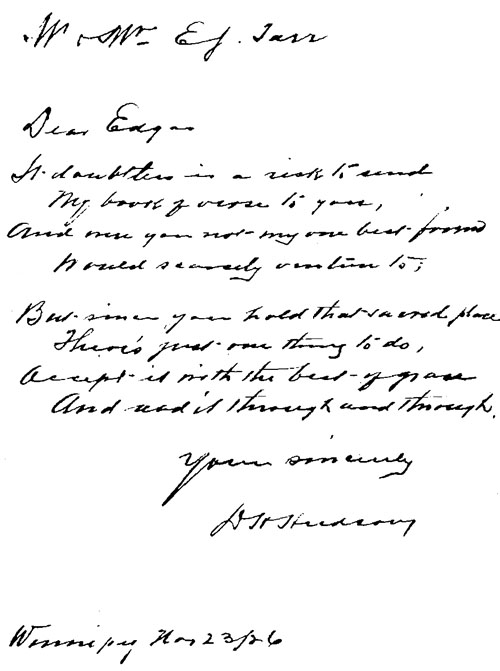 Mr & Mrs E.J. Tarr
Dear Edgar
It doubtless is a risk to send
My book of verse to you,
And were you not my one best friend
Would scarcely venture to;
But since you hold that sacred place
There's just one thing to do,
Accept it with the best of grace
And read it through and through.
Yours sincerely
Hudson
Winnipeg Nov 23/26